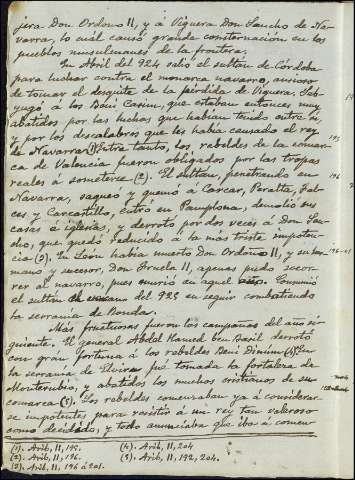 jera Don Ordoño II, y á Viguera Don Sancho de Na-
varra, lo cuál causó grande consternación en los
pueblos musulmanes de la frontera.
En Abril del 924 salió el sultan de Córdoba
para luchar contra el monarca navarro, ansioso
de tomar el desquite de la perdida de Viguera. Sub-
yugó á los Beni Casim, que estaban entonces muy
abatidos por las luchas que habian tenido entre si,
y por los descalabros que les habia causado el rey
de Navarra (1). Entre tanto, los rebeldes de la comar-
ca de Valencia fueron obligados por las tropas
reales á someterse (2). El sultan, penetrando en
Navarra, saqueó y quemó á Carcar, Peralta, Fal-
ces y Carcastillo, entró en Pamplona, demolió sus
casas é iglesias, y derrotó por dos veces á Don San-
cho, que quedó reducido á la mas triste impoten-
cia (3). En León habia muerto Don Ordoño II, y su her-
mano y sucesor, Don Fruela II, apenas pudo socor-
rer al navarro, pues murió en aquel Consumió
el sultan el verano del 925 en seguir combatiendo
la serranía de Ronda.
Más fructuosas fueron las campañas del año si-
guiente. El general Abdel Hamed ben Basil derrotó
con gran fortuna á los rebeldes Beni Dinum (4). En
la serranía de Elvira fué tomada la fortaleza de
Monterubio, y abatidos los muchos cristianos de su
comarca (5). Los rebeldes comenzaban ya á considerar-
se impotentes para resistir á un rey tan valeroso
como decidido, y todo anunciaba que iba á comen-
(1). Arib, II, 195.
(2). Arib, II, 196.
(3). Arib, II, 196 á 201.
(4). Arib, II, 204
(5). Arib, II, 192, 204.
195
196